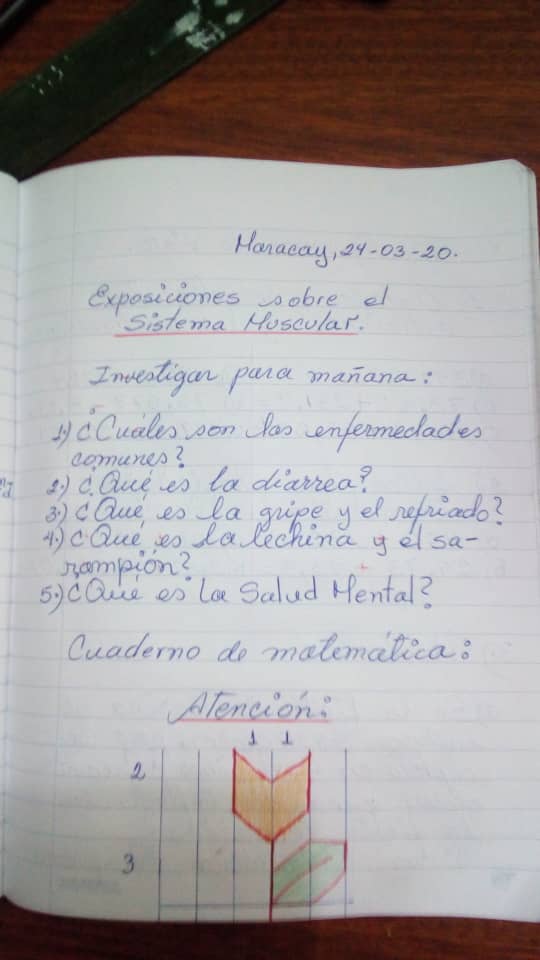 Maracay, 24-03-20.
Exposiciones sobre el
Sistema Muscular.
Investigar para mañana:
1.) ¿Cuáles son las enfermedades
comunes?
2.) ¿Qué es la diarrea?
3.) ¿Qué es la gripe y el refriado?
4.) ¿Qué es la lechina y el sa-
rampión?
5.) ¿Qué es la Salud Mental?
Cuaderno de matemática:
Atención:
1 1
2
3